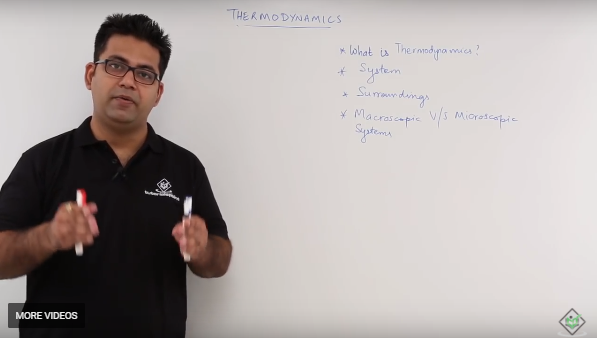 THERMODYNAMICS
* What is Thermodynamics?
* System
* Surroundings
* Macroscopic V/S Microscopic
Systems
MORE VIDEOS